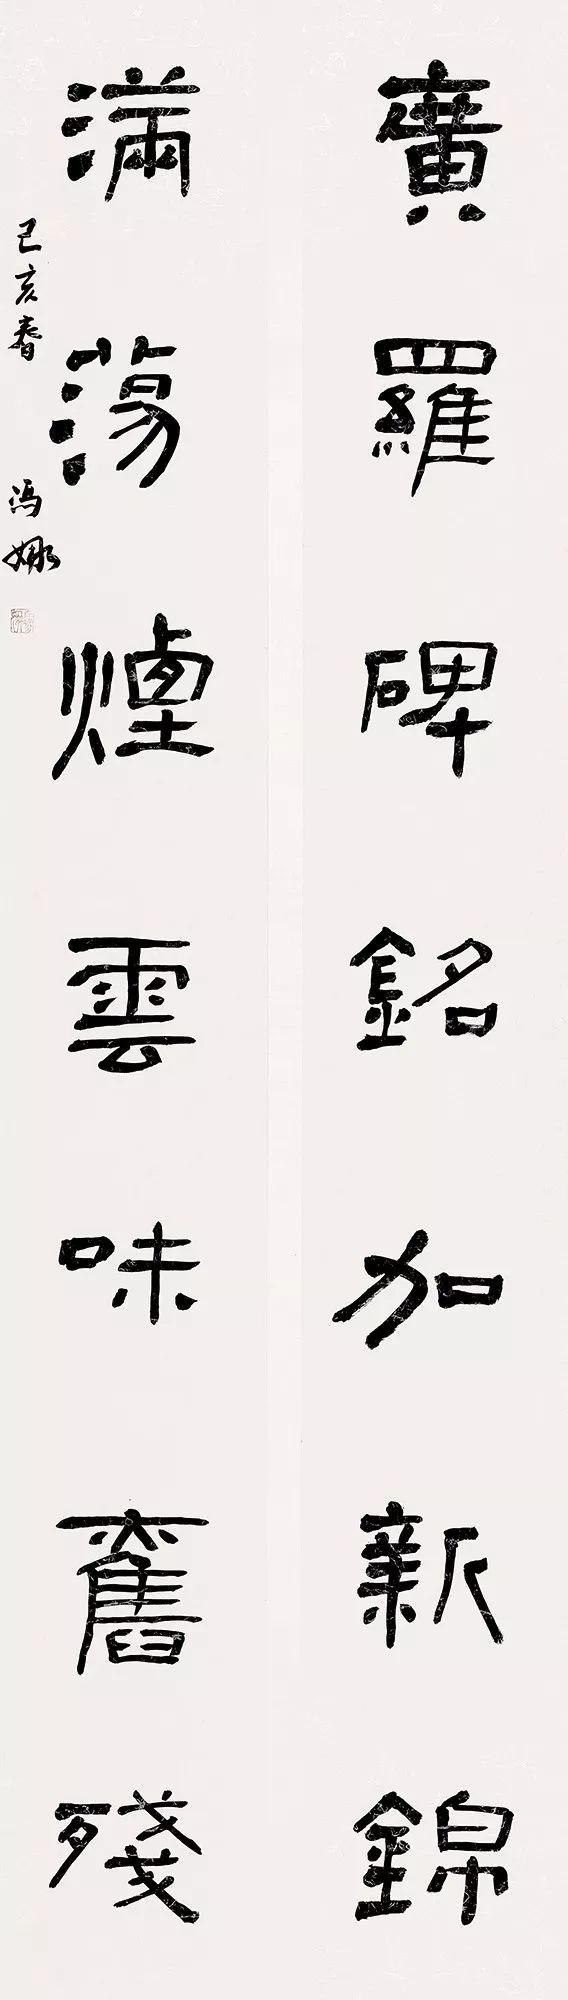 廣羅碑銘加新錦
滿蕩煙雲味舊殘
己亥春 冯娜